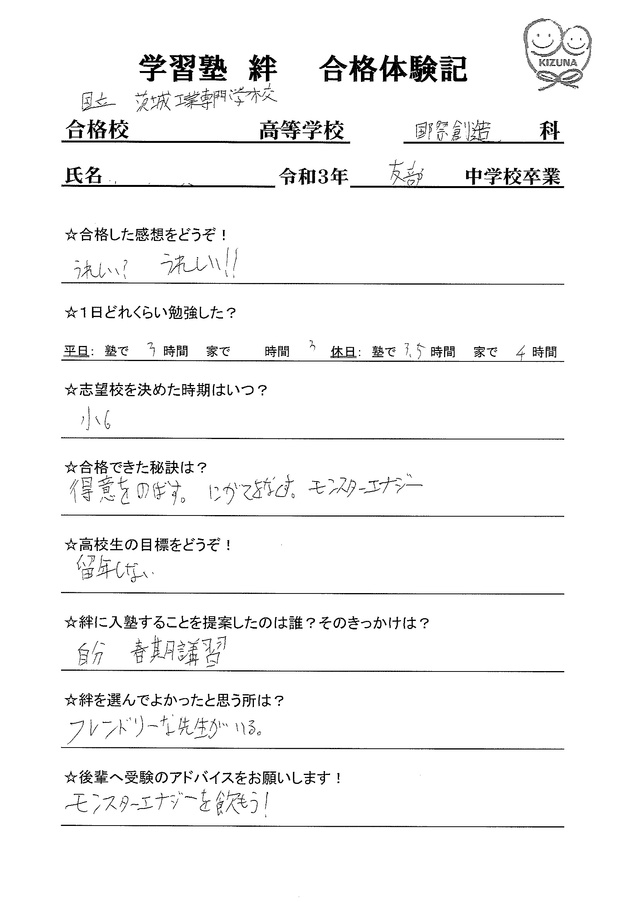 KIZUNA
学習塾 絆 合格体験記
国立 茨城工業専門学校
合格校 高等学校 国際創造 科
氏名 令和3年 友部 中学校卒業
☆合格した感想をどうぞ！
うれしい? うれしい!!
☆1日どれくらい勉強した？
平日: 塾で 3 時間 家で 時間 3 休日: 塾で 3.5 時間 家で 4 時間
☆志望校を決めた時期はいつ？
小6
☆合格できた秘訣は？
得意をのばす。 にがてをなくす。 モンスターエナジー
☆高校生の目標をどうぞ！
留年しない
☆絆に入塾することを提案したのは誰？そのきっかけは？
自分 春期講習
☆絆を選んでよかったと思う所は？
フレンドリーな先生がいる。
☆後輩へ受験のアドバイスをお願いします！
モンスターエナジーを飲もう!